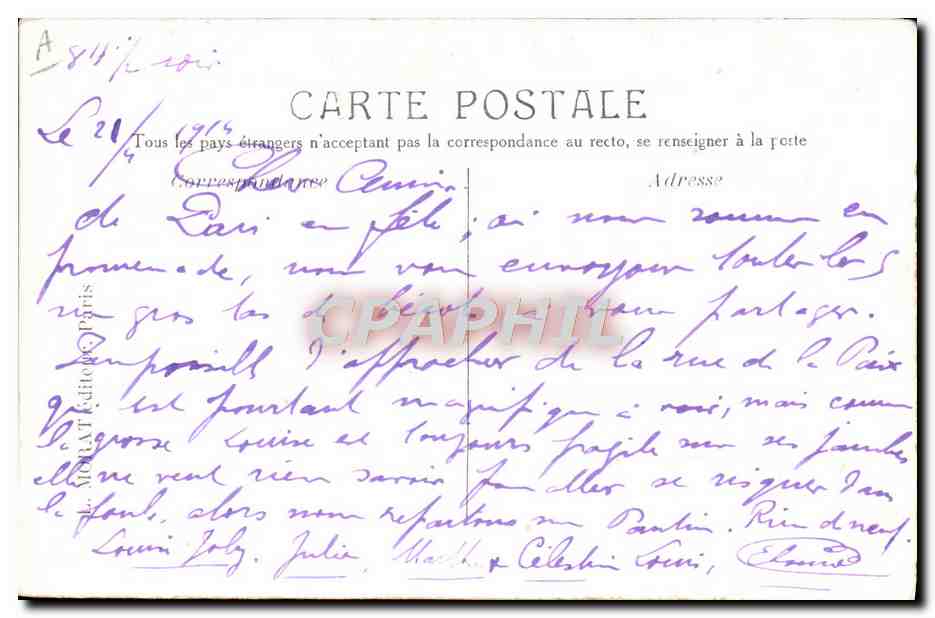 A
8 H 1/2 soir
CARTE POSTALE
Le 21/4 1914
Tous les pays étrangers n'acceptant pas la correspondance au recto, se renseigner à la poste
Correspondance
Adresse
Cher Amis.
de Paris en fête, où nous sommes en
promenade, nous vous envoyons toutes les 5
un gros tas de bécots à vous partager.
Impossible d'approcher de la rue de la Paix
qui est pourtant magnifique à voir, mais comme
la grosse Louise est toujours fragile sur ses jambes
elle ne veut rien savoir pour aller se risquer dans
la foule, alors nous repartons sur Pantin. Rien de neuf.
Louis Joly. Julie, Marthe & Célestin Louis,
L. MORAT Éditeur, Paris
CPAPHIL